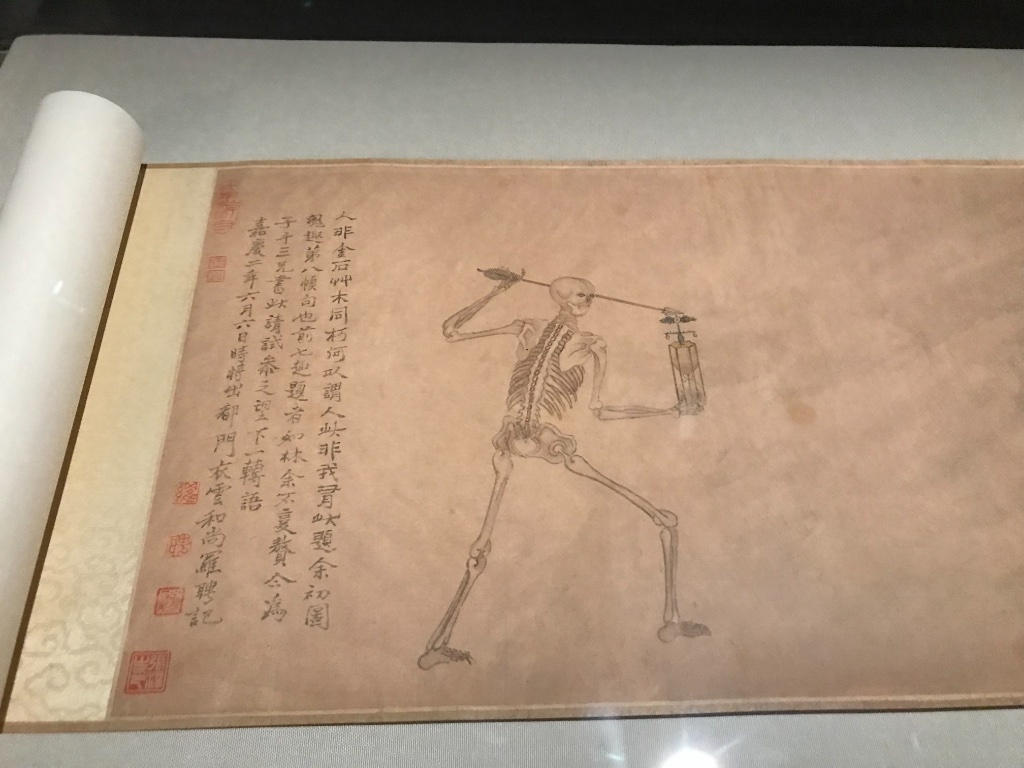 人非金石艸木同朽何以謂人此非我有此題余初圖
鬼趣第八幀句也前七趣題者如林余不复贅今為
子年三兄書此請試參之望下一轉語
嘉慶二年六月六日時將出都門衣雲和尚羅聘記